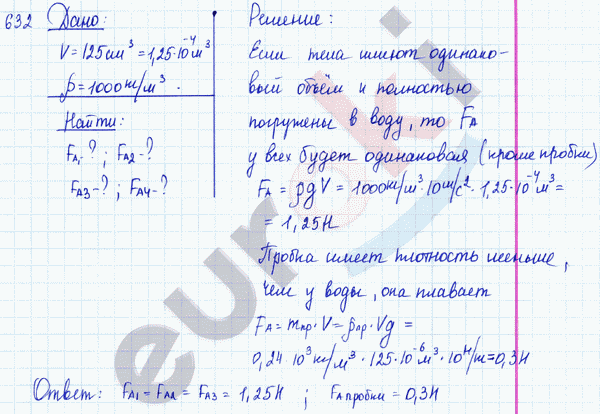 632 Дано:
V = 125 см³ = 1,25·10⁻⁴ м³
ρ = 1000 кг/м³.
Найти:
FA₁-? ; FA2-?
FA3-? ; FA4-?
Решение:
Если тела имеют одинако-
вый объём и полностью
погружены в воду, то FA
у всех будет одинаковая (кроме пробки)
FA = ρgV = 1000 кг/м³ · 10 м/с² · 1,25·10⁻⁴ м³ =
= 1,25Н
Пробка имеет плотность меньше,
чем у воды, она плавает
FA = mпр · V = ρпр · Vg =
0,24 · 10³ кг/м³ · 125·10⁻⁶ м³ · 10 Н/кг = 0,3Н
Ответ: FA1 = FA2 = FA3 = 1,25Н ; FA пробки = 0,3Н
euroki